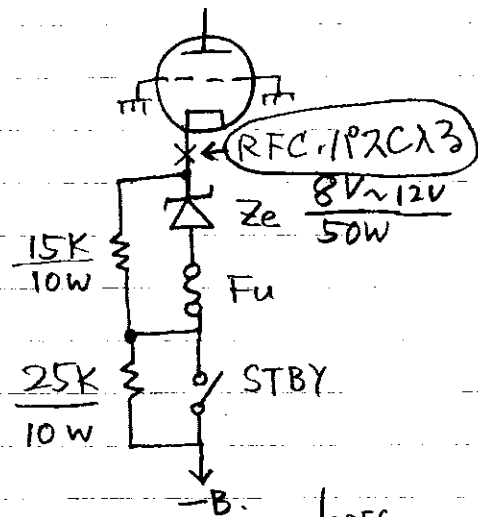 RFC.パスC入る
8V~12V
50W
Ze
15K
10W
Fu
25K
10W
STBY
-B.